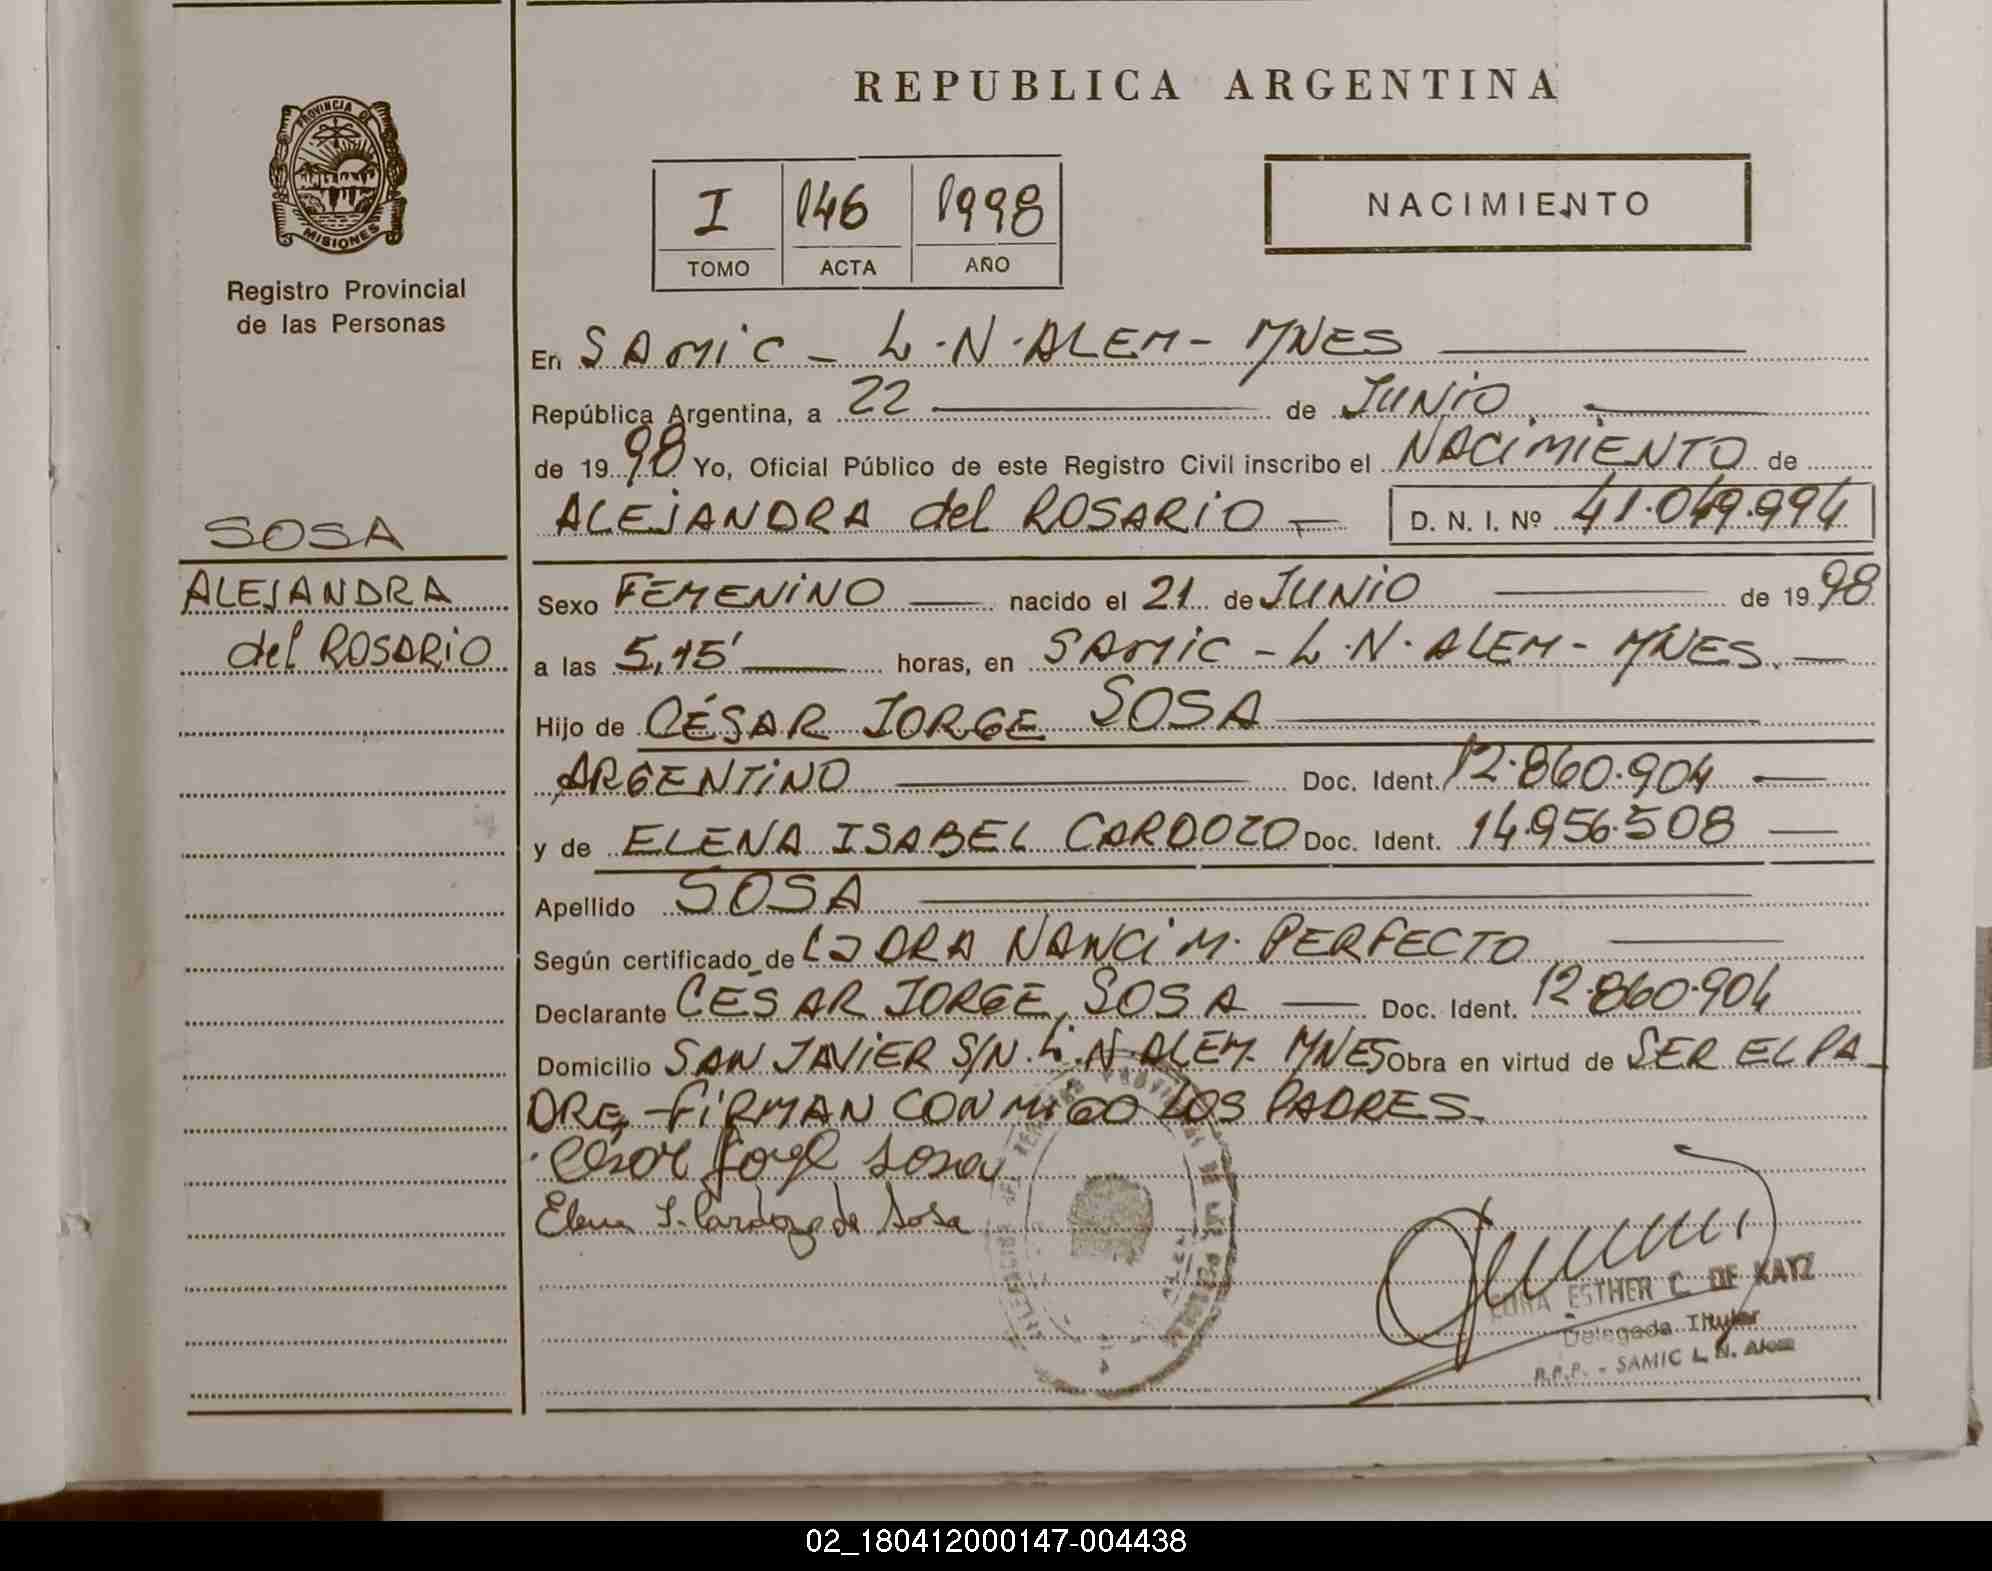 REPUBLICA ARGENTINA
PROVINCIA DE
MISIONES
Registro Provincial
de las Personas
I 146 1998
TOMO ACTA AÑO
NACIMIENTO
En SAMIC - L.N.ALEM - MNES
República Argentina, a 22 de JUNIO
de 1998 Yo, Oficial Público de este Registro Civil inscribo el NACIMIENTO de
ALEJANDRA del ROSARIO D. N. I. Nº 41.049.994
SOSA
ALEJANDRA
del ROSARIO
Sexo FEMENINO nacido el 21 de JUNIO de 1998
a las 5,15' horas, en SAMIC - L.N. ALEM - MNES.
Hijo de CÉSAR JORGE SOSA
ARGENTINO Doc. Ident. 12.860.904
y de ELENA ISABEL CARDOZO Doc. Ident. 14.956.508
Apellido SOSA
Según certificado de DRA NANCI M. PERFECTO
Declarante CESAR JORGE SOSA Doc. Ident. 12.860.904
Domicilio SAN JAVIER S/N. L.N.ALEM. MNES Obra en virtud de SER EL PA_
DRE, FIRMAN CONMIGO LOS PADRES.
César Jorge Sosa
Elena I. Cardozo de Sosa
ESTHER C. DE KATZ
Delegada Titular
R.P.P. - SAMIC L. N. Alem
02_180412000147-004438